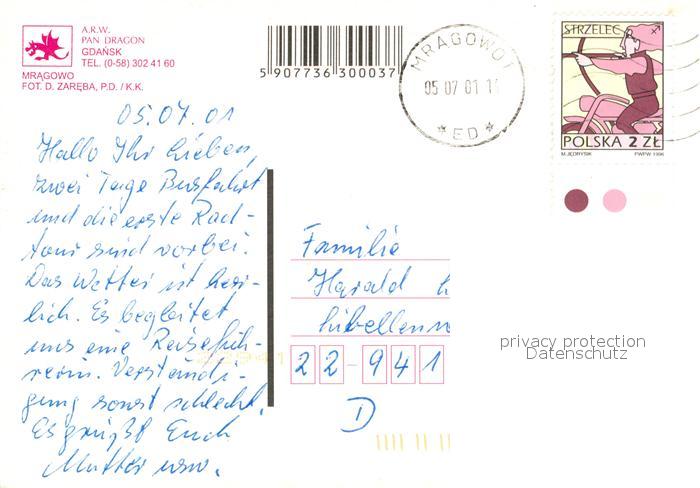 A.R.W.
PAN DRAGON
GDAŃSK
TEL. (0-58) 302 41 60
MRĄGOWO
FOT. D. ZARĘBA, P.D. / K.K.
5 907736 300037
MRĄGOWO 1
05 07 01
* ED *
STRZELEC
POLSKA 2 ZŁ
M. JĘDRYSIK PWPW 1996
05.07.01
Hallo Ihr Lieben,
zwei Tage Busfahrt
und die erste Rad-
tour sind vorbei.
Das Wetter ist herr-
lich. Es begleitet
uns eine Reiseführ-
rerin. Verständi-
gung sonst schlecht.
Es grüßt Euch
Mutter usw.
Familie
Harald
Libellenw
22-941
D
privacy protection
Datenschutz